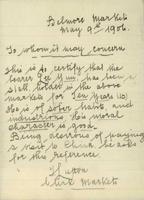 Belmore Markets
May 9th 1906.
To whom it may concern
This is to certify that the
bearer Gee Mun, has been a
stall-holder in the above
markets for Ten Years (10)
He is of sober habits, and
industrious, his moral
character is good.
Being desirous of paying
a visit to China he asks
for this reference.
Clerk Markets